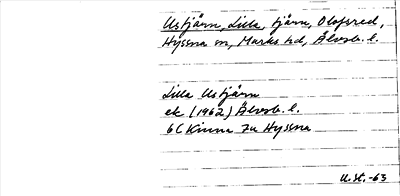 Ustjärn, Lilla, tjärn, Olofsred,
Hyssna sn, Marks hd, Älvsb. l.
Lilla Ustjärn
ek (1962) Älvsb. l.
6C Kinna 7a Hyssna
U.St.-63